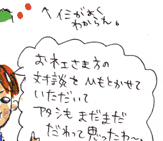 へイミがよく
わからん。
おネエさま方の
対談をひもとかせて
いただいて
アタシも まだまだ
だわって思ったわ〜。